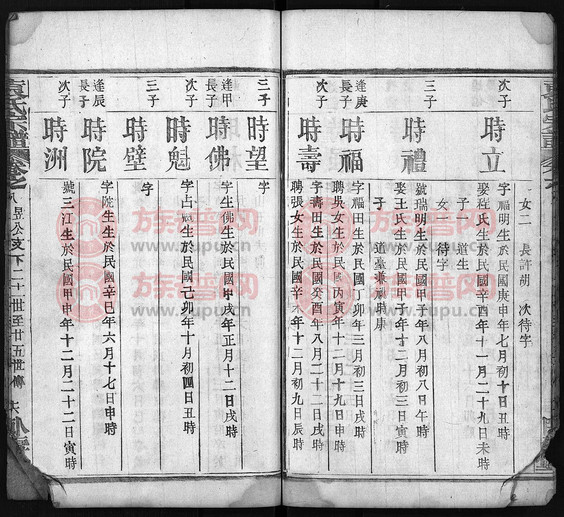 女二 長許胡 次待字
次子
時立
字福明生於民國庚申年七月初十日丑時
娶程氏生於民國辛酉年十一月二十九日未時
子一 道生
女一 待字
三子
時禮
號瑞明生於民國甲子年八月初八日午時
娶王氏生於民國甲子年十二月初三日寅時
子 道臺兼祧時康
逢庚
長子
時福
字福生生於民國丁卯年三月初三日戌時
聘吳女生於民國丙寅年十二月十九日申時
次子
時壽
字壽田生於民國癸酉年八月二十二日戌時
聘張女生於民國辛未年十二月初九日辰時
三子
時望
字
逢甲
長子
時佛
字生佛生於民國甲戌年正月十二日戌時
次子
時魁
字占魁生於民國己卯年十月初四日丑時
三子
時壁
字
逢辰
長子
時院
字院生生於民國辛巳年六月十七日申時
次子
時洲
號三江生於民國甲申年十二月二十二日寅時
袁氏宗譜
卷之八
昱公支下二十一世至廿五世傳
族谱网
www.zupu.cn
族谱网
www.zupu.cn
族谱网
www.zupu.cn
族谱网
www.zupu.cn